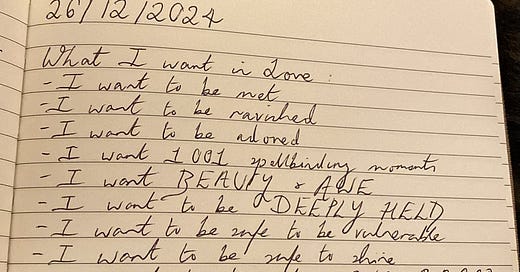 26/12/2024
What I want in Love:
- I want to be met
- I want to be ravished
- I want to be adored
- I want 1001 spellbinding moments
- I want BEAUTY & AWE
- I want to be DEEPLY HELD
- I want to be safe to be vulnerable
- I want to be safe to shine